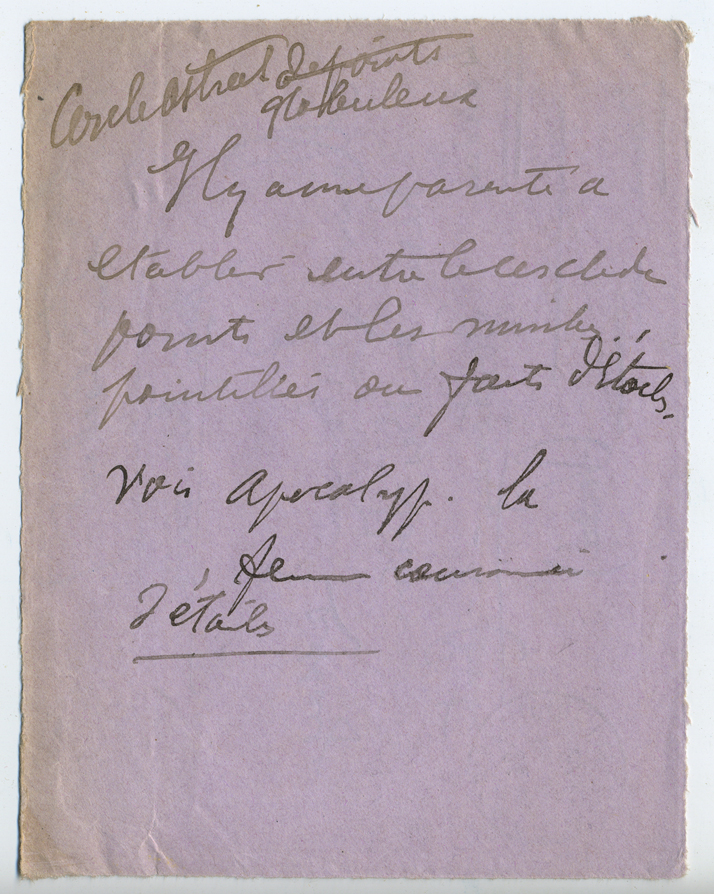 Cercle astral de points
globuleux
Il y a une parenté a
etablir entre le cercle de
points et les nimbes
pointillés ou faits d'étoiles.
Voir Apocalyp. la
femme couronnée
d'étoiles